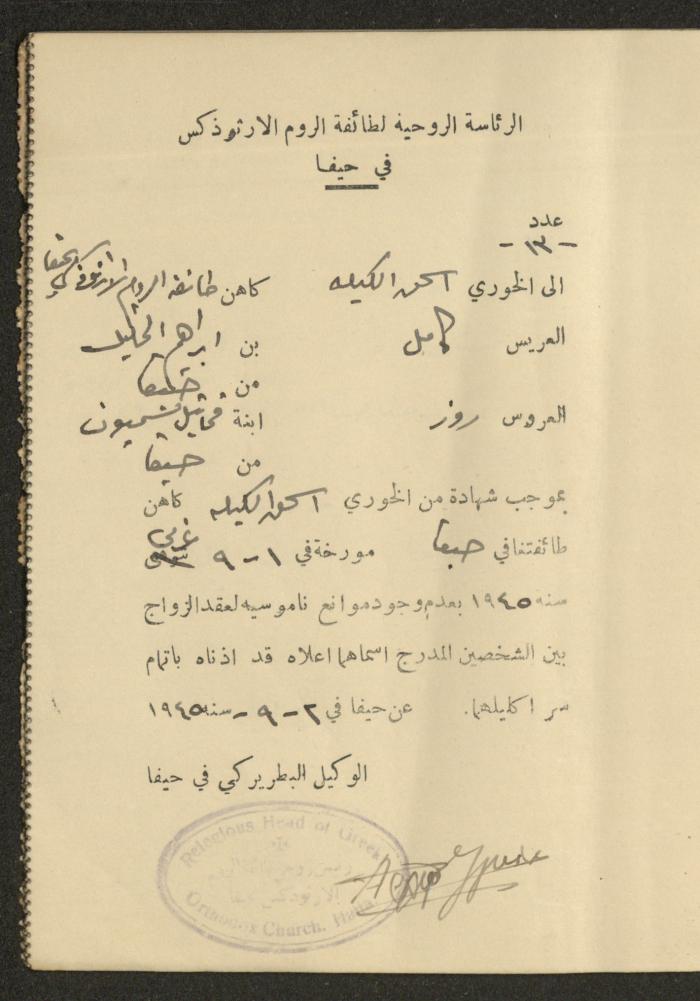 الرئاسة الروحية لطائفة الروم الارثوذكس
في حيفا
عدد
-١٣-
الى الخوري اسحق الكيله كاهن طائفة الروم الارثوذكس بحيفا
العريس كامل بن ابراهيم الخليل
من حيفا
العروس روز ابنة شميون
من حيفا
بموجب شهادة من الخوري اسحق الكيله كاهن
طائفتنا في حيفا مورخة في ١ - ٩ غربي
سنه ١٩٤٥ بعدم وجود موانع ناموسيه لعقد الزواج
بين الشخصين المدرج اسماهما اعلاه قد اذناه باتمام
سر اكليلهما. عن حيفا في ٢ - ٩ - سنه ١٩٤٥
الوكيل البطريركي في حيفا
Religious Head of Greek
الارثوذكس بحيفا
Orthodox Church, Haifa